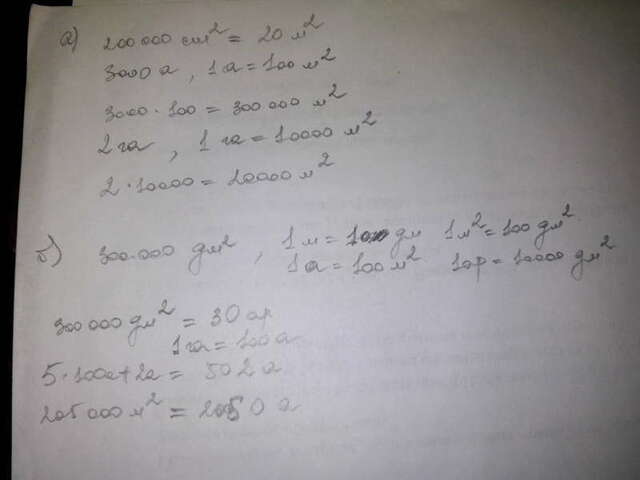 а) 200 000 см² = 20 м²
3000 а, 1 а = 100 м²
3000 · 100 = 300 000 м²
2 га, 1 га = 10000 м²
2 · 10000 = 20000 м²
б) 300.000 дм², 1 м = 10 дм 1 м² = 100 дм²
1 а = 100 м² 1 ар = 10000 дм²
300 000 дм² = 30 ар
1 га = 100 а
5 · 100а + 2а = 502 а
205 000 м² = 2050 а